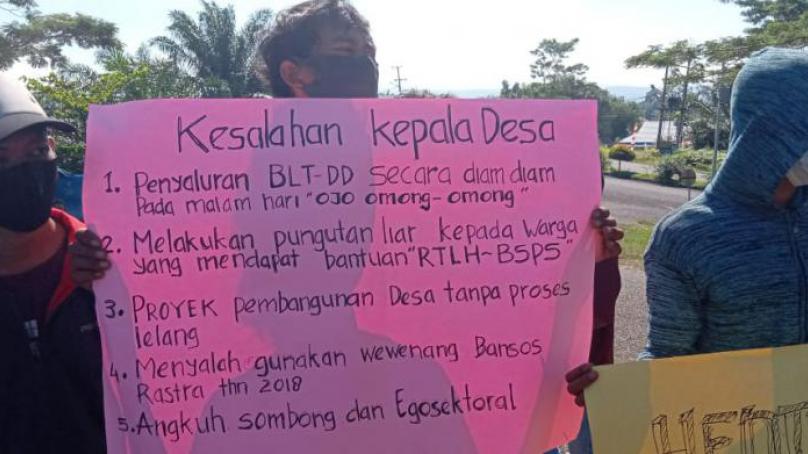 Kesalahan kepala Desa
1. Penyaluran BLT-DD secara diam diam
Pada malam hari "OJO omong-omong"
2. Melakukan pungutan liar kepada warga
yang mendapat bantuan "RTLH-BSPS"
3. PROYEK pembangunan Desa tanpa proses
lelang
4. Menyalah gunakan wewenang Bansos
Rastra thn 2018
5. Angkuh sombong dan Egosektoral